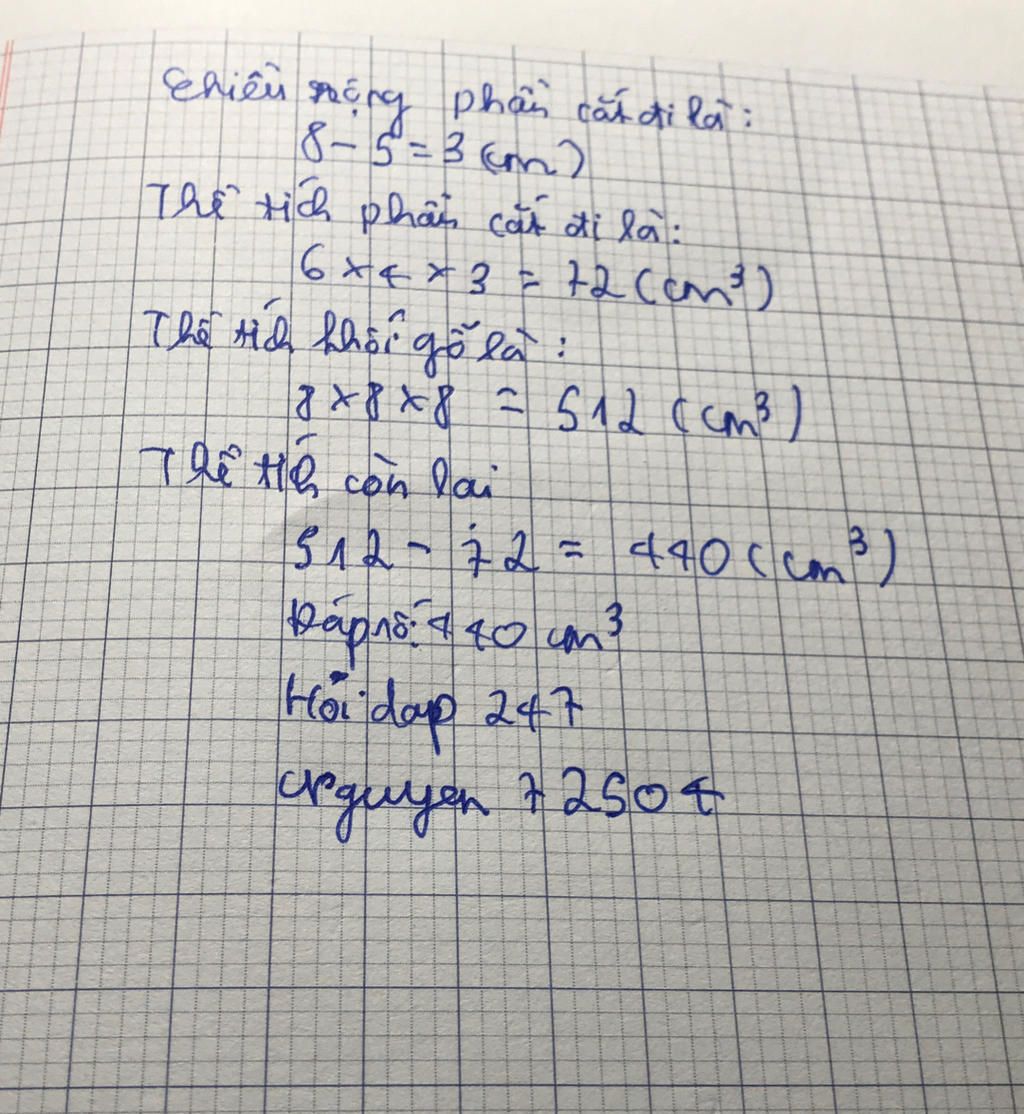 Chiều rộng phần cắt đi là:
8 - 5 = 3 (cm)
Thể tích phần cắt đi là:
6 x 4 x 3 = 72 (cm³)
Thể tích khối gỗ là:
8 x 8 x 8 = 512 (cm³)
Thể tích còn lai
512 - 72 = 440 (cm³)
Đáp số: 440 cm³
Hỏi dap 247
nguyen 72504